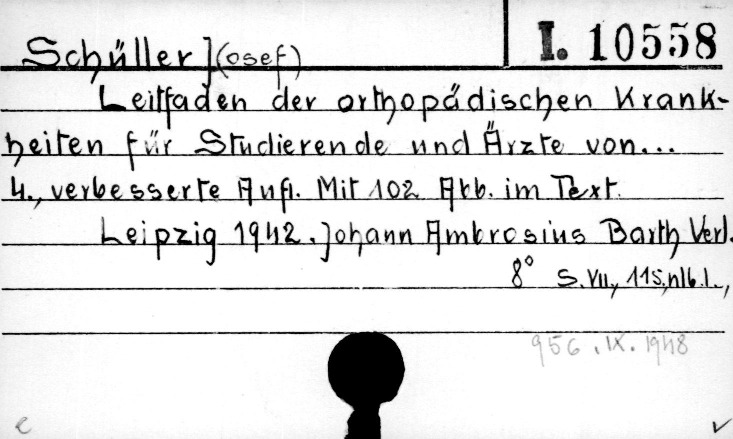 I. 10558
Schüller J(osef)
Leitfaden der orthopädischen Krank-
heiten für Studierende und Ärzte von...
4., verbesserte Aufl. Mit 102 Abb. im Text.
Leipzig 1942. Johann Ambrosius Barth Verl.
8° S. VII, 115,
956. IX. 1948